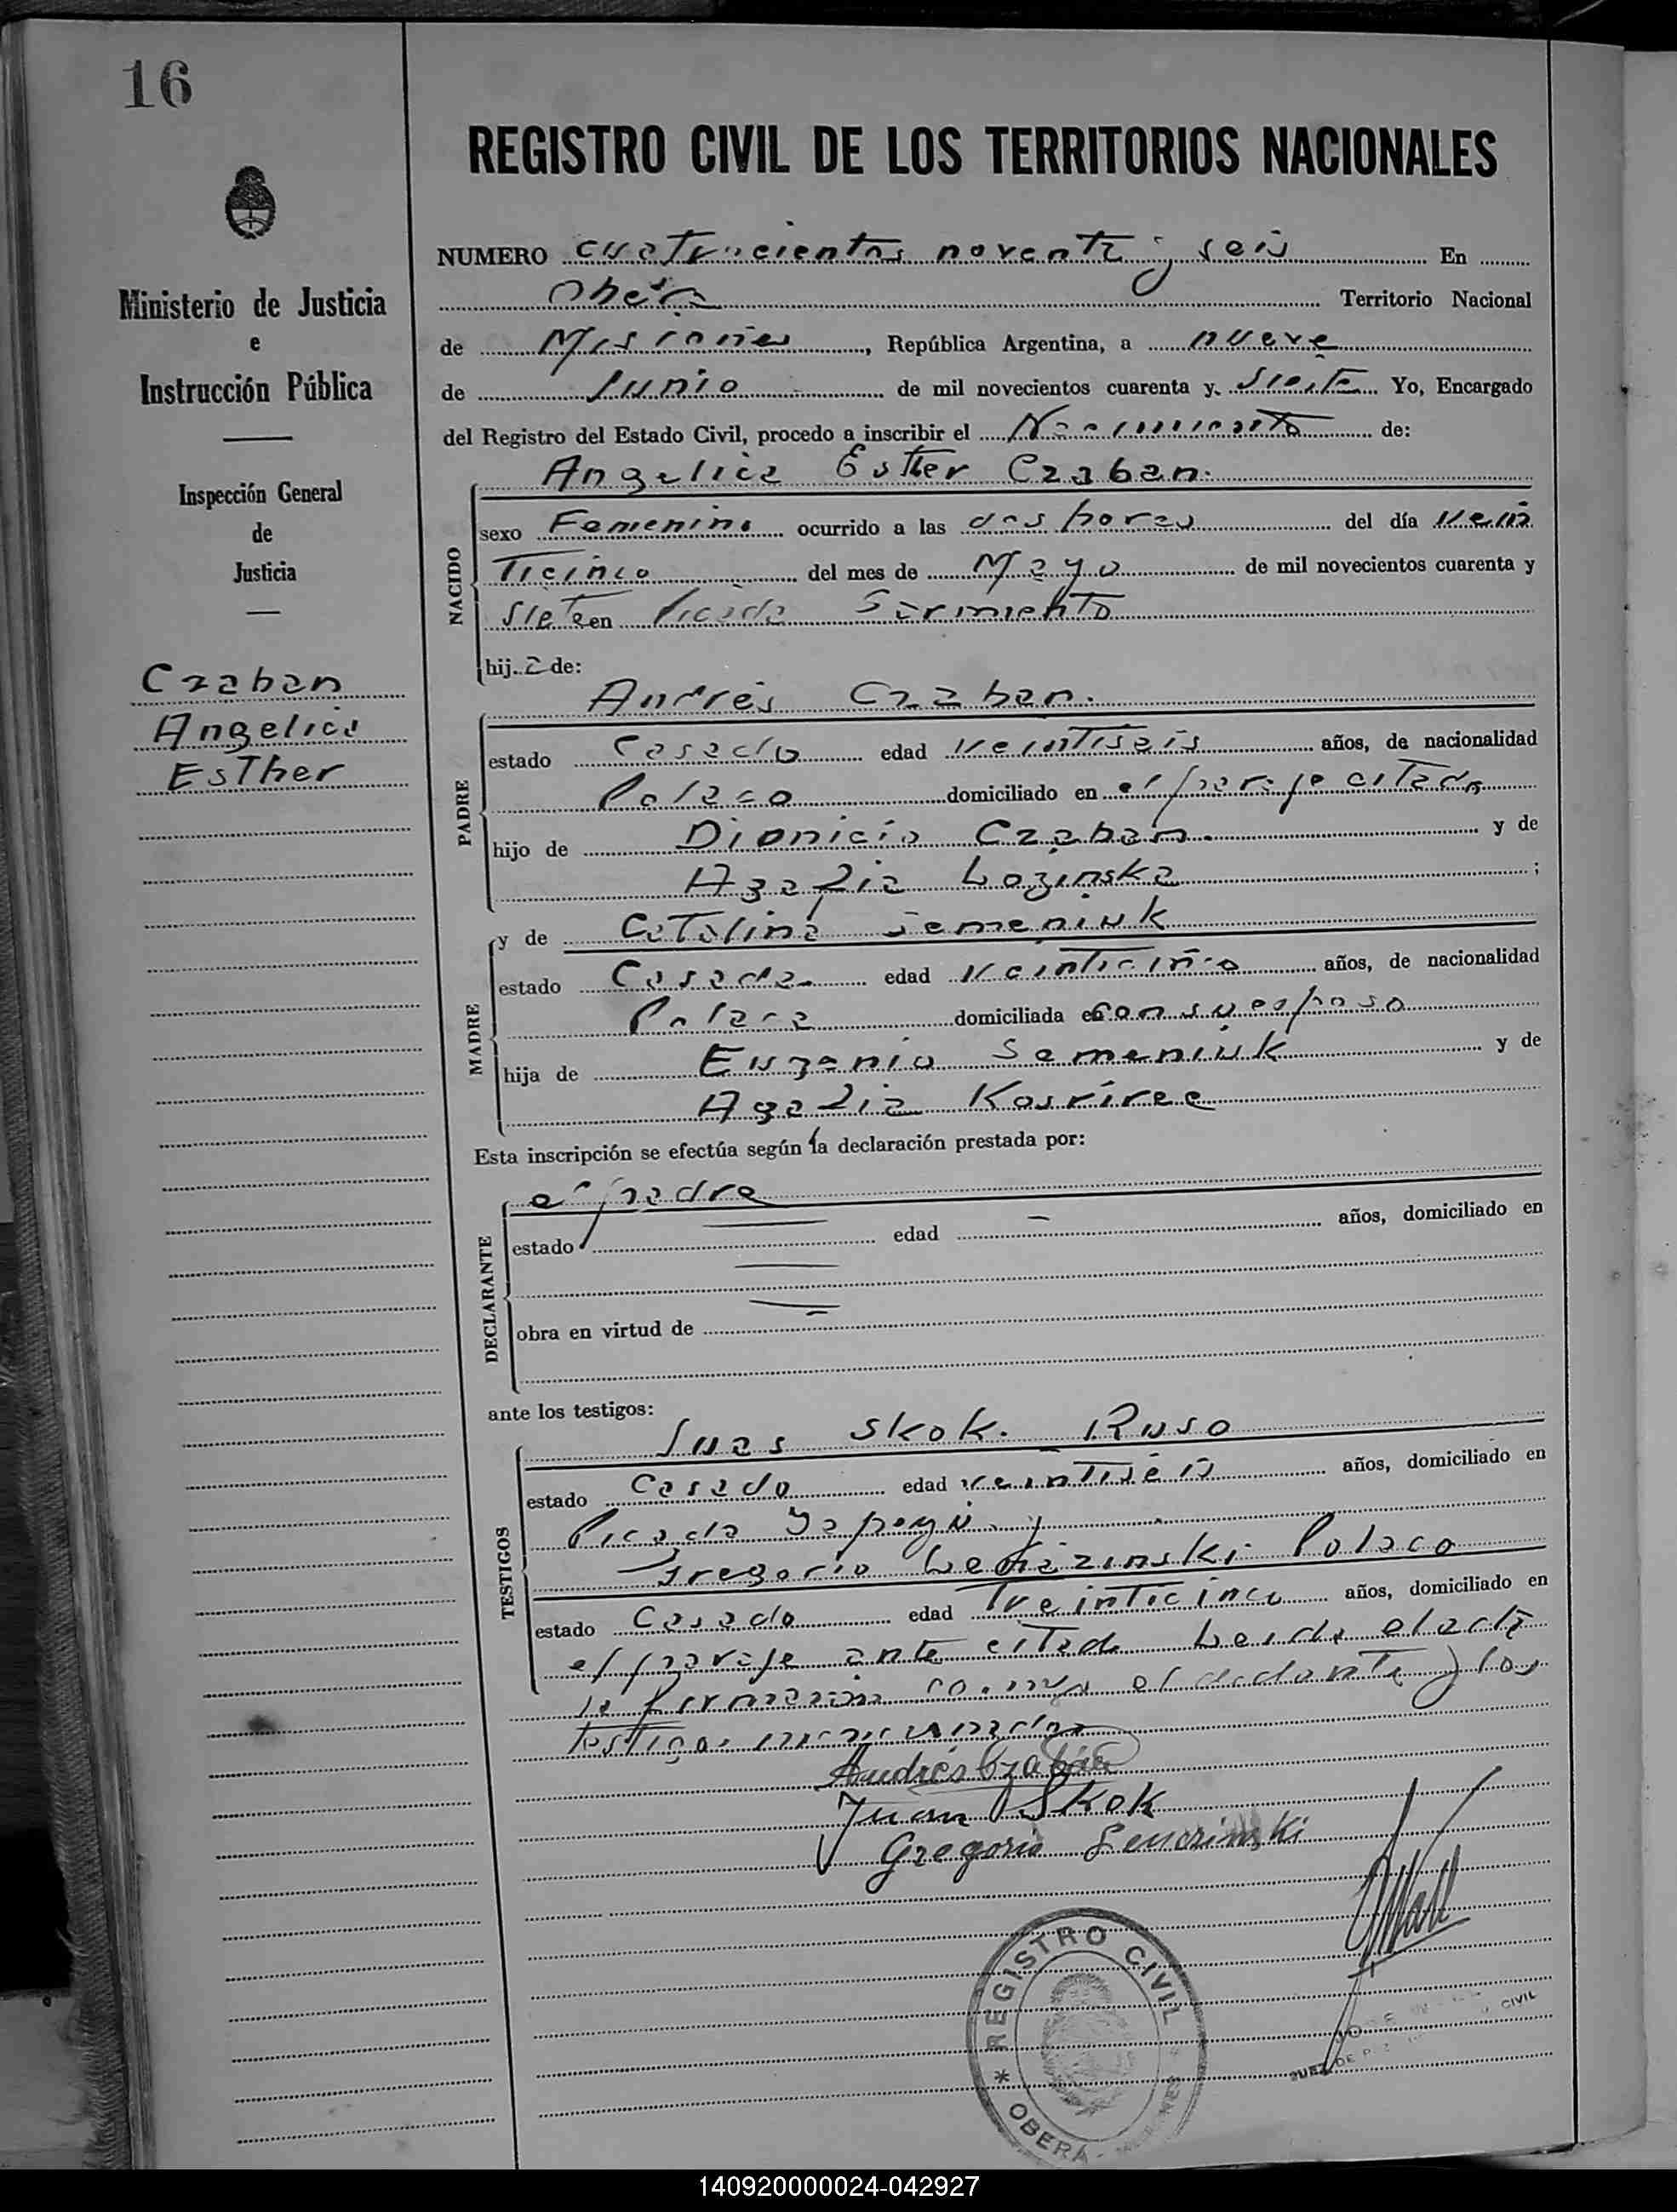 16
REGISTRO CIVIL DE LOS TERRITORIOS NACIONALES
Ministerio de Justicia
e
Instrucción Pública
Inspección General
de
Justicia
Czaban
Angelica
Esther
NUMERO cuatrocientos noventa y seis En
Oberá Territorio Nacional
de Misiones, República Argentina, a nueve
de Junio de mil novecientos cuarenta y siete Yo, Encargado
del Registro del Estado Civil, procedo a inscribir el Nacimiento de:
NACIDO
Angelica Esther Czaban.
sexo Femenino ocurrido a las dos horas del día vein
ticinco del mes de Mayo de mil novecientos cuarenta y
siete en Picada Sarmiento
hija de:
PADRE
Andrés Czaban.
estado Casado edad veintiseis años, de nacionalidad
Polaco domiciliado en el paraje citado
hijo de Dionicio Czaban. y de
Agafia Lozinska ;
MADRE
y de Catalina Semeniuk
estado Casada edad veinticinco años, de nacionalidad
Polaca domiciliada con su esposo
hija de Eugenio Semeniuk y de
Agafia
Esta inscripción se efectúa según la declaración prestada por:
DECLARANTE
el padre
estado edad años, domiciliado en
obra en virtud de
ante los testigos:
TESTIGOS
Juan Skok. Ruso
estado Casado edad veintiseis años, domiciliado en
Picada Yapeyú y
Gregorio Polaco
estado Casado edad treinticinco años, domiciliado en
el paraje ante citado Leida el acta
la firmaron conmigo el y los
testigos mencionados
Andrés Czaban
Juan Skok
Gregorio
REGISTRO CIVIL
* OBERÁ -
JUEZ DE P CIVIL
140920000024-042927